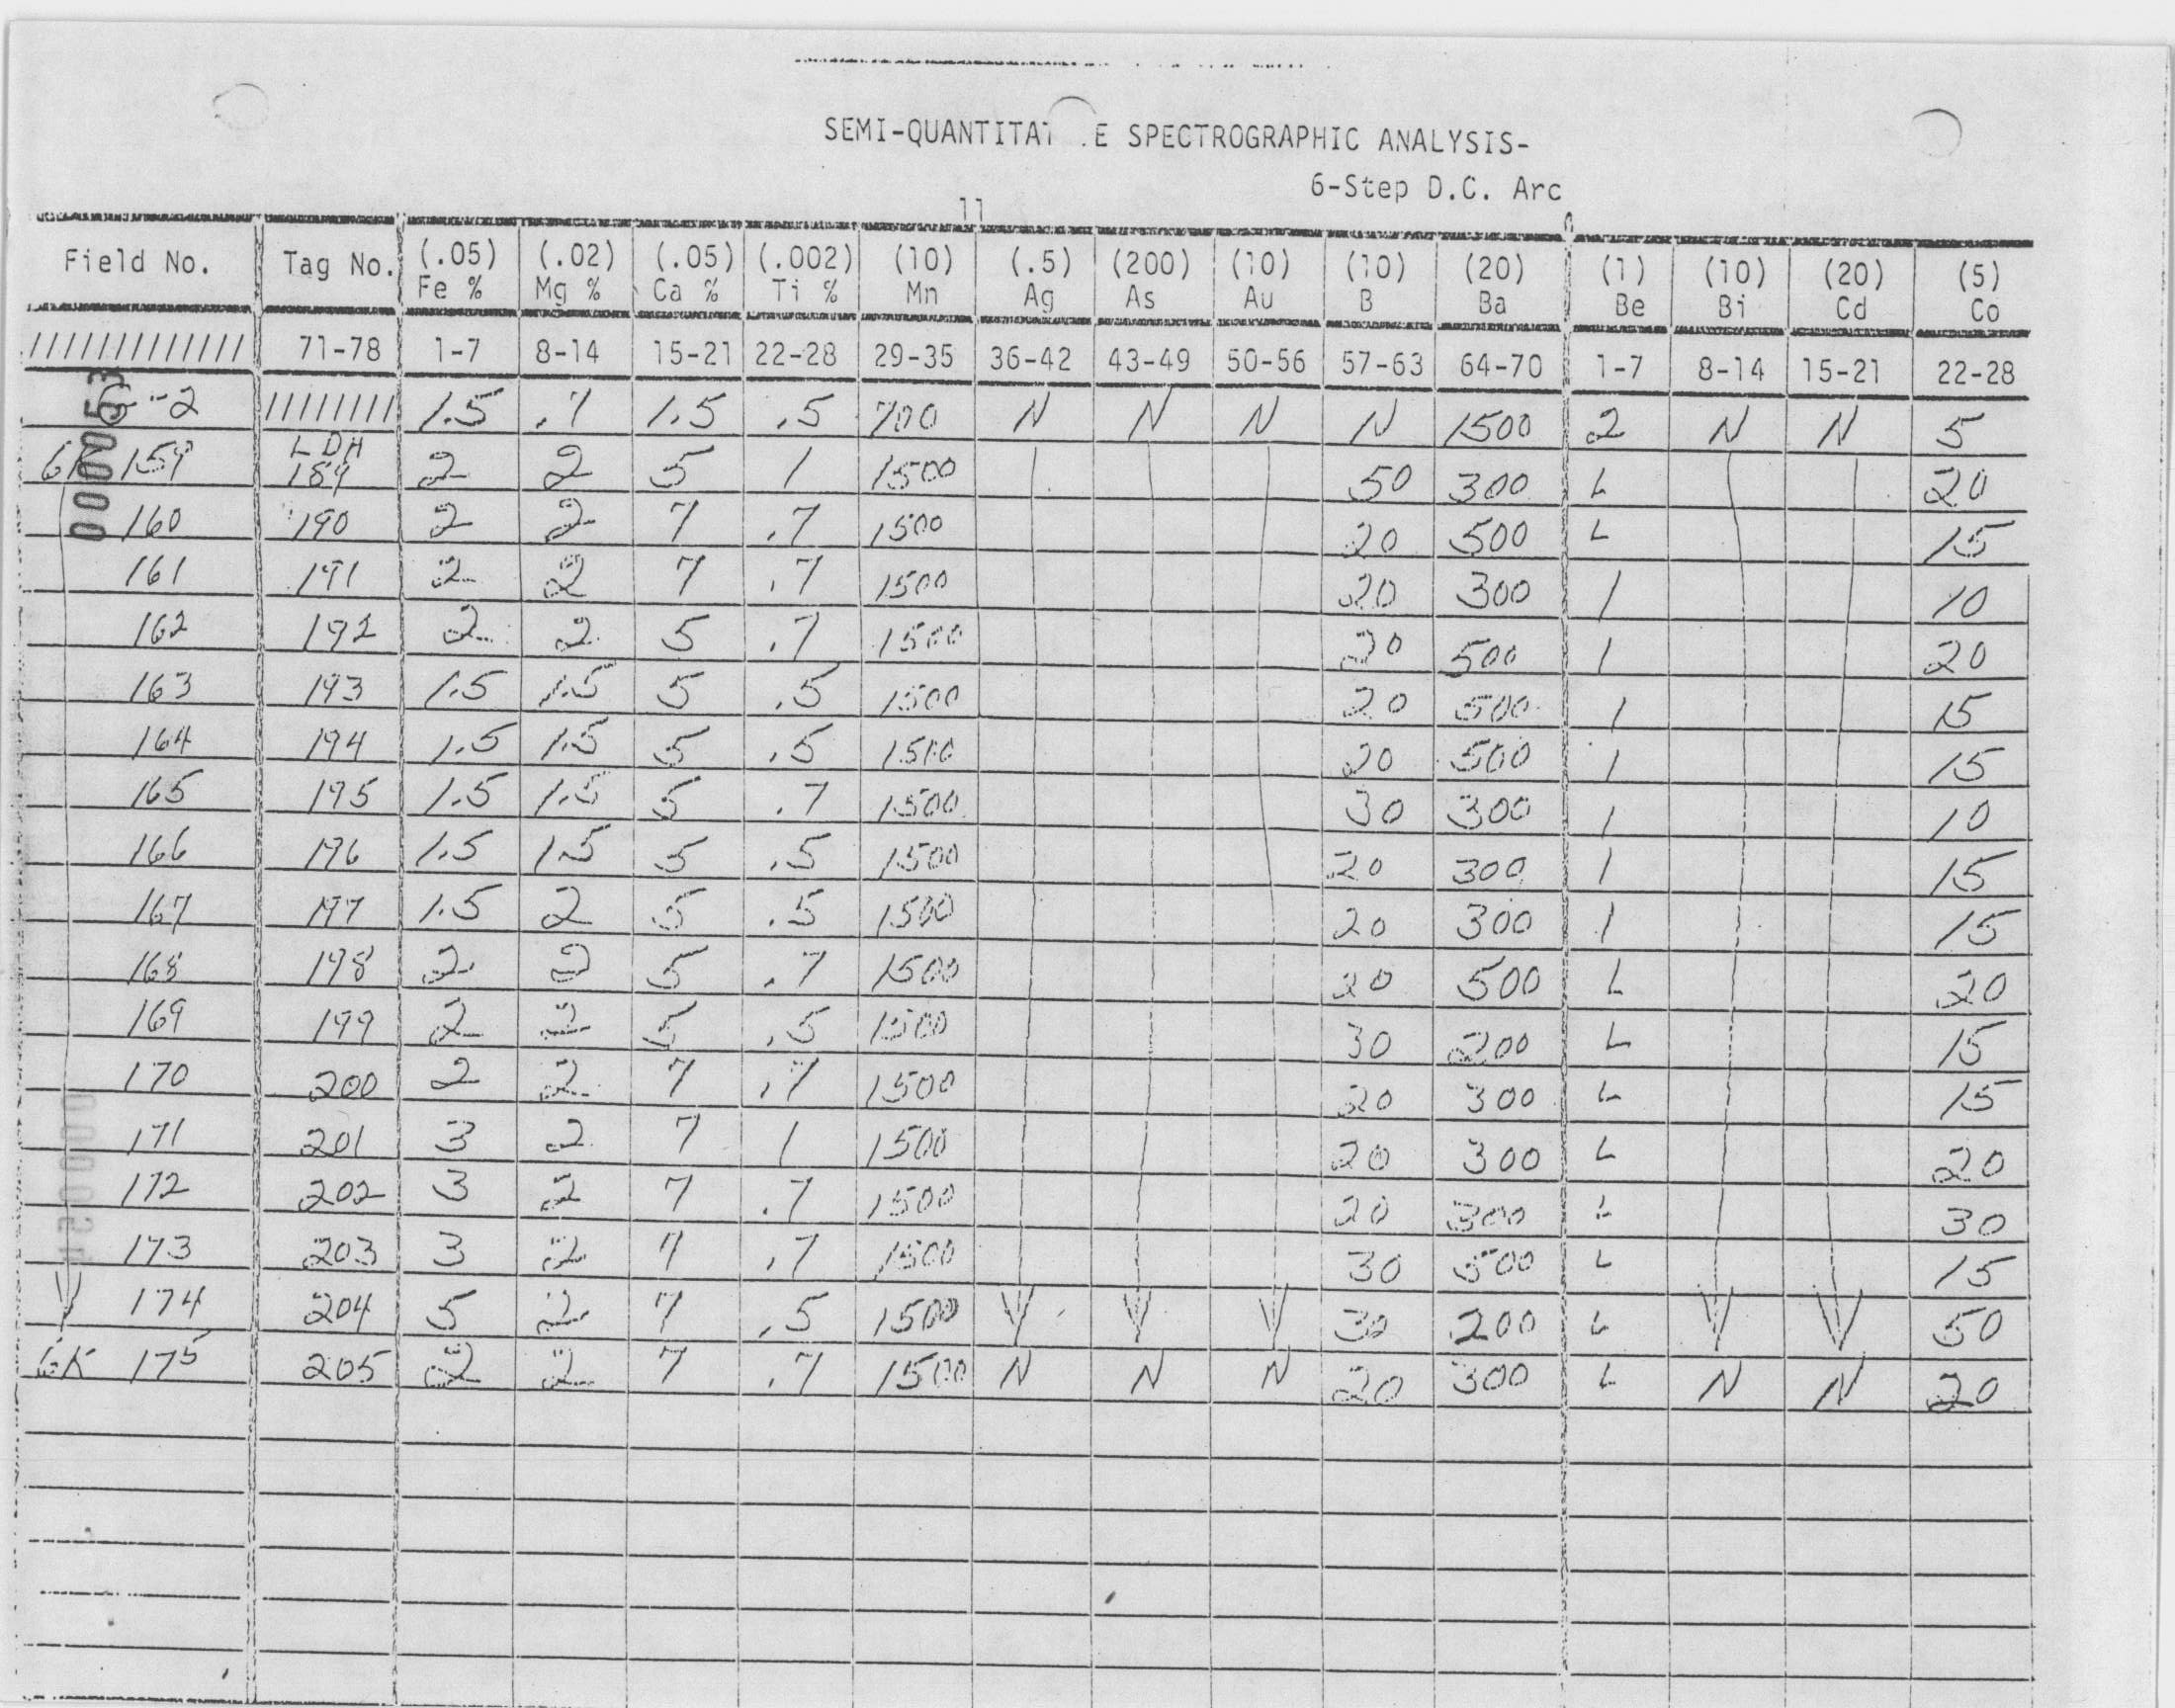 SEMI-QUANTITAT E SPECTROGRAPHIC ANALYSIS-
6-Step D.C. Arc
11
Field No. Tag No. (.05) Fe % (.02) Mg % (.05) Ca % (.002) Ti % (10) Mn (.5) Ag (200) As (10) Au (10) B (20) Ba (1) Be (10) Bi (20) Cd (5) Co
///////////// 71-78 1-7 8-14 15-21 22-28 29-35 36-42 43-49 50-56 57-63 64-70 1-7 8-14 15-21 22-28
G-2 //////// 1.5 .7 1.5 .5 700 N N N N 1500 2 N N 5
159 LDH 189 2 2 5 1 1500 50 300 L 20
160 190 2 2 7 .7 1500 20 500 L 15
161 191 2 2 7 .7 1500 20 300 1 10
162 192 2 2 5 .7 1500 20 500 1 20
163 193 1.5 1.5 5 .5 1500 20 500 1 15
164 194 1.5 1.5 5 .5 1500 20 500 1 15
165 195 1.5 1.5 5 .7 1500 30 300 1 10
166 196 1.5 1.5 5 .5 1500 20 300 1 15
167 197 1.5 2 5 .5 1500 20 300 1 15
168 198 2 2 5 .7 1500 20 500 L 20
169 199 2 2 5 .5 1500 30 200 L 15
170 200 2 2 7 .7 1500 20 300 L 15
171 201 3 2 7 1 1500 20 300 L 20
172 202 3 2 7 .7 1500 20 300 L 30
173 203 3 2 7 .7 1500 30 500 L 15
174 204 5 2 7 .5 1500 30 200 L 50
GK 175 205 2 2 7 .7 1500 N N N 20 300 L N N 20
0000053